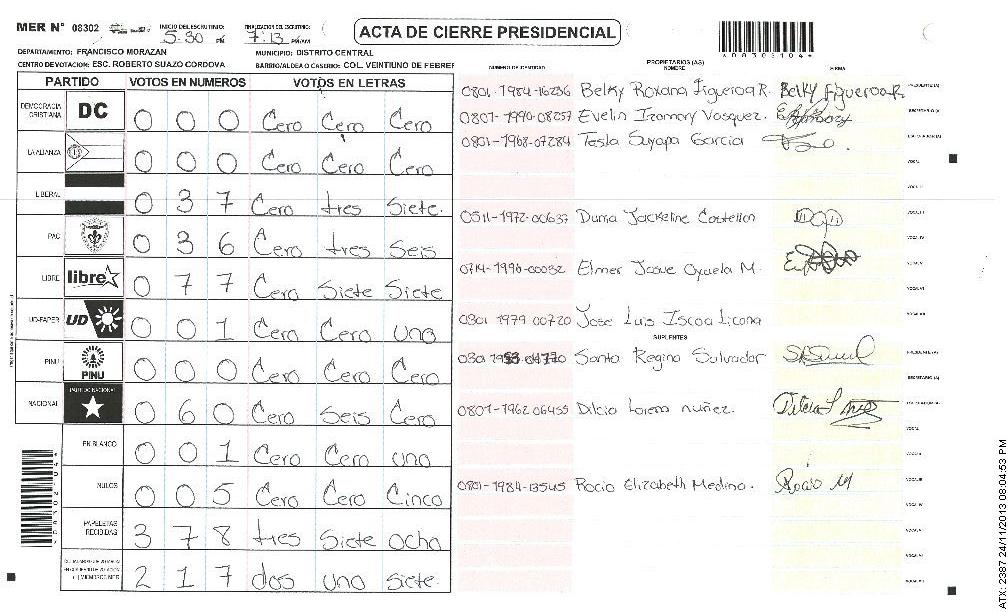 MER N° 08302 INICIO DEL ESCRUTINIO: 5:30 PM FINALIZACION DEL ESCRUTINIO: 7:13 PM/AM ACTA DE CIERRE PRESIDENCIAL
DEPARTAMENTO: FRANCISCO MORAZAN MUNICIPIO: DISTRITO CENTRAL
CENTRO DE VOTACION: ESC. ROBERTO SUAZO CORDOVA BARRIO/ALDEA O CASERIO: COL. VEINTIUNO DE FEBRER
PARTIDO VOTOS EN NUMEROS VOTOS EN LETRAS
DEMOCRACIA CRISTIANA DC 0 0 0 Cero Cero Cero
LA ALIANZA 0 0 0 Cero Cero Cero
LIBERAL 0 3 7 Cero tres Siete.
PAC 0 3 6 Cero tres Seis
LIBRE libre 0 7 7 Cero Siete Siete
UD-FAPER UD 0 0 1 Cero Cero uno
PINU PINU 0 0 0 Cero Cero Cero
NACIONAL PARTIDO NACIONAL 0 6 0 Cero Seis Cero
EN BLANCO 0 0 1 Cero Cero uno
NULOS 0 0 5 Cero Cero Cinco
PAPELETAS RECIBIDAS 3 7 8 tres Siete ocho
2 1 7 dos uno Siete.
PROPIETARIOS (AS)
NUMERO DE IDENTIDAD NOMBRE FIRMA
0801-1984-16236 Belky Roxana Figueroa R. Belky Figueroa R PRESIDENTE (A)
0801-1990-08257 Evelin Vasquez. SECRETARIO (A)
0801-1968-07284 Tesla Suyapa Garcia
VOCAL
0511-1972-00637 Jackeline Castellon
0714-1990-00032 Elmer Josue M.
0801 1979 00720 Jose Luis Iscoa Licona
SUPLENTES
Santo Regino Salvador PRESIDENTE (A)
SECRETARIO (A)
0801-1962 06455 Dilcia Lorena nuñez.
VOCAL
0801-1984-13545 Rocio Elizabeth Medina. Rocio M
ATX: 2387 24/11/2013 08:04:53 PM